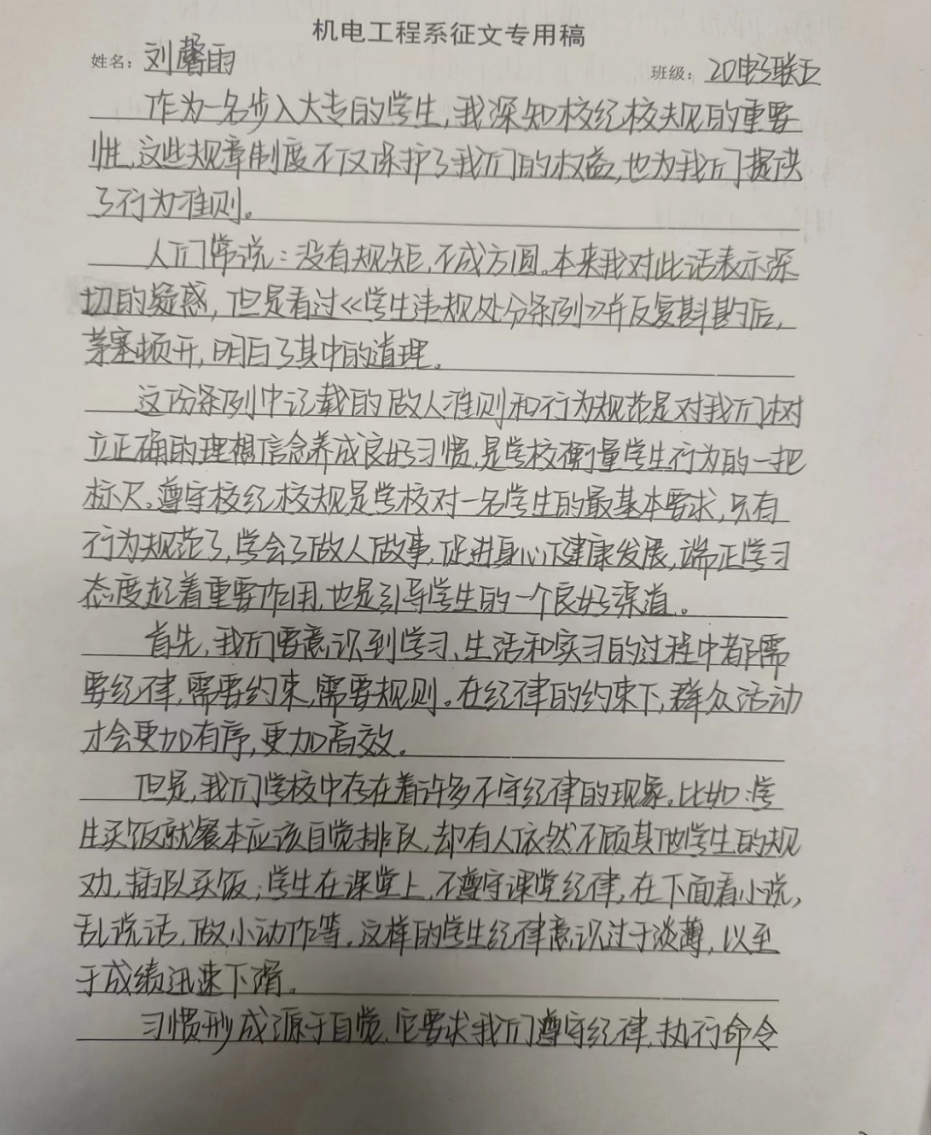 机电工程系征文专用稿
姓名：刘馨雨 班级：20电联五
作为一名步入大专的学生，我深知校纪校规的重要
性，这些规章制度不仅保护了我们的权益，也为我们提供
了行为准则。
人们常说：没有规矩，不成方圆。本来我对此话表示深
切的疑惑，但是看过《学生违规处分条例》并反复斟酌后，
茅塞顿开，明白了其中的道理。
这份条例中记载的做人准则和行为规范是对我们树
立正确的理想信念养成良好习惯，是学校衡量学生行为的一把
标尺。遵守校纪校规是学校对一名学生的最基本要求，只有
行为规范了，学会了做人做事，促进身心下健康发展，端正学习
态度起着重要作用，也是引导学生的一个良好渠道。
首先，我们要意识到学习、生活和实习的过程中都需
要纪律，需要约束，需要规则。在纪律的约束下，群众活动
才会更加有序，更加高效。
但是，我们学校中存在着许多不守纪律的现象。比如：学
生买饭就餐本应该自觉排队，却有人依然不顾其他学生的规
劝，插队买饭；学生在课堂上，不遵守课堂纪律，在下面看小说，
乱说话，做小动作等。这样的学生纪律意识过于淡薄，以至
于成绩迅速下滑。
习惯形成源于自觉，它要求我们遵守纪律，执行命令